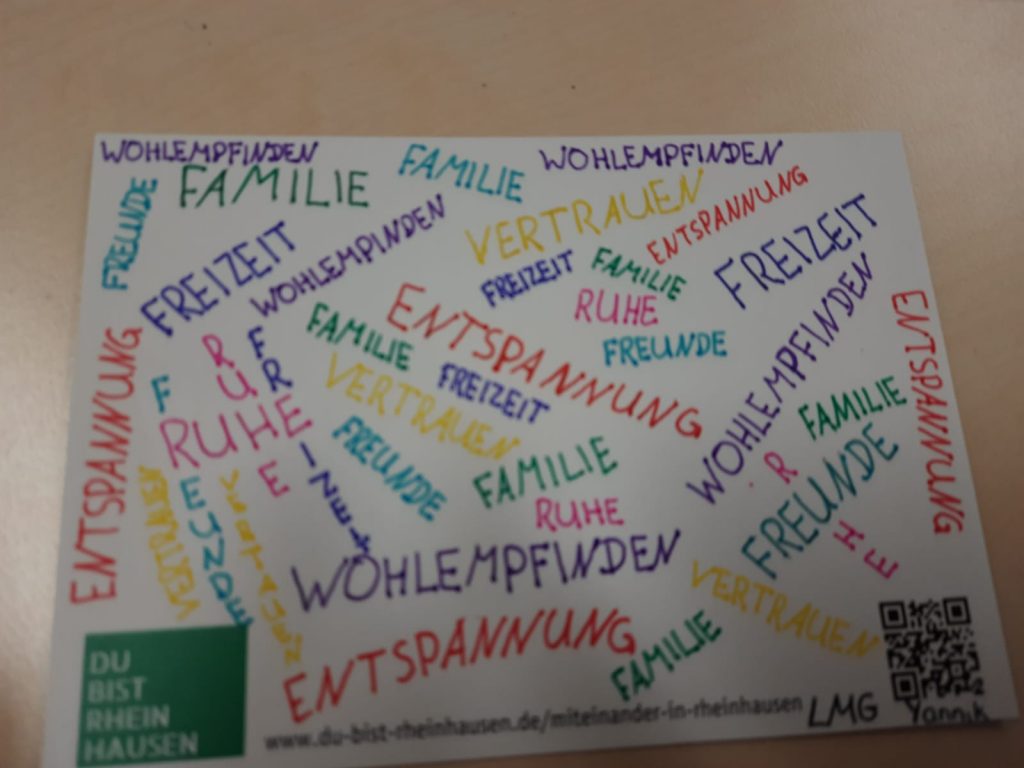 WOHLEMPFINDEN
FAMILIE
WOHLEMPFINDEN
FAMILIE
FREUNDE
VERTRAUEN
ENTSPANNUNG
FREIZEIT
WOHLEMPINDEN
FREIZEIT
FAMILIE
FREIZEIT
RUHE
FREUNDE
ENTSPANNUNG
FAMILIE
VERTRAUEN
FREIZEIT
ENTSPANNUNG
RUHE
RUHE
FREUNDE
FAMILIE
RUHE
WOHLEMPFINDEN
FAMILIE
FREUNDE
R HE
ENTSPANNUNG
VERTRAUEN
WOHLEMPFINDEN
VERTRAUEN
ENTSPANNUNG
FAMILIE
DU
BIST
RHEIN
HAUSEN
www.du-bist-rheinhausen.de/miteinander-in-rheinhausen
LMG
Yannik